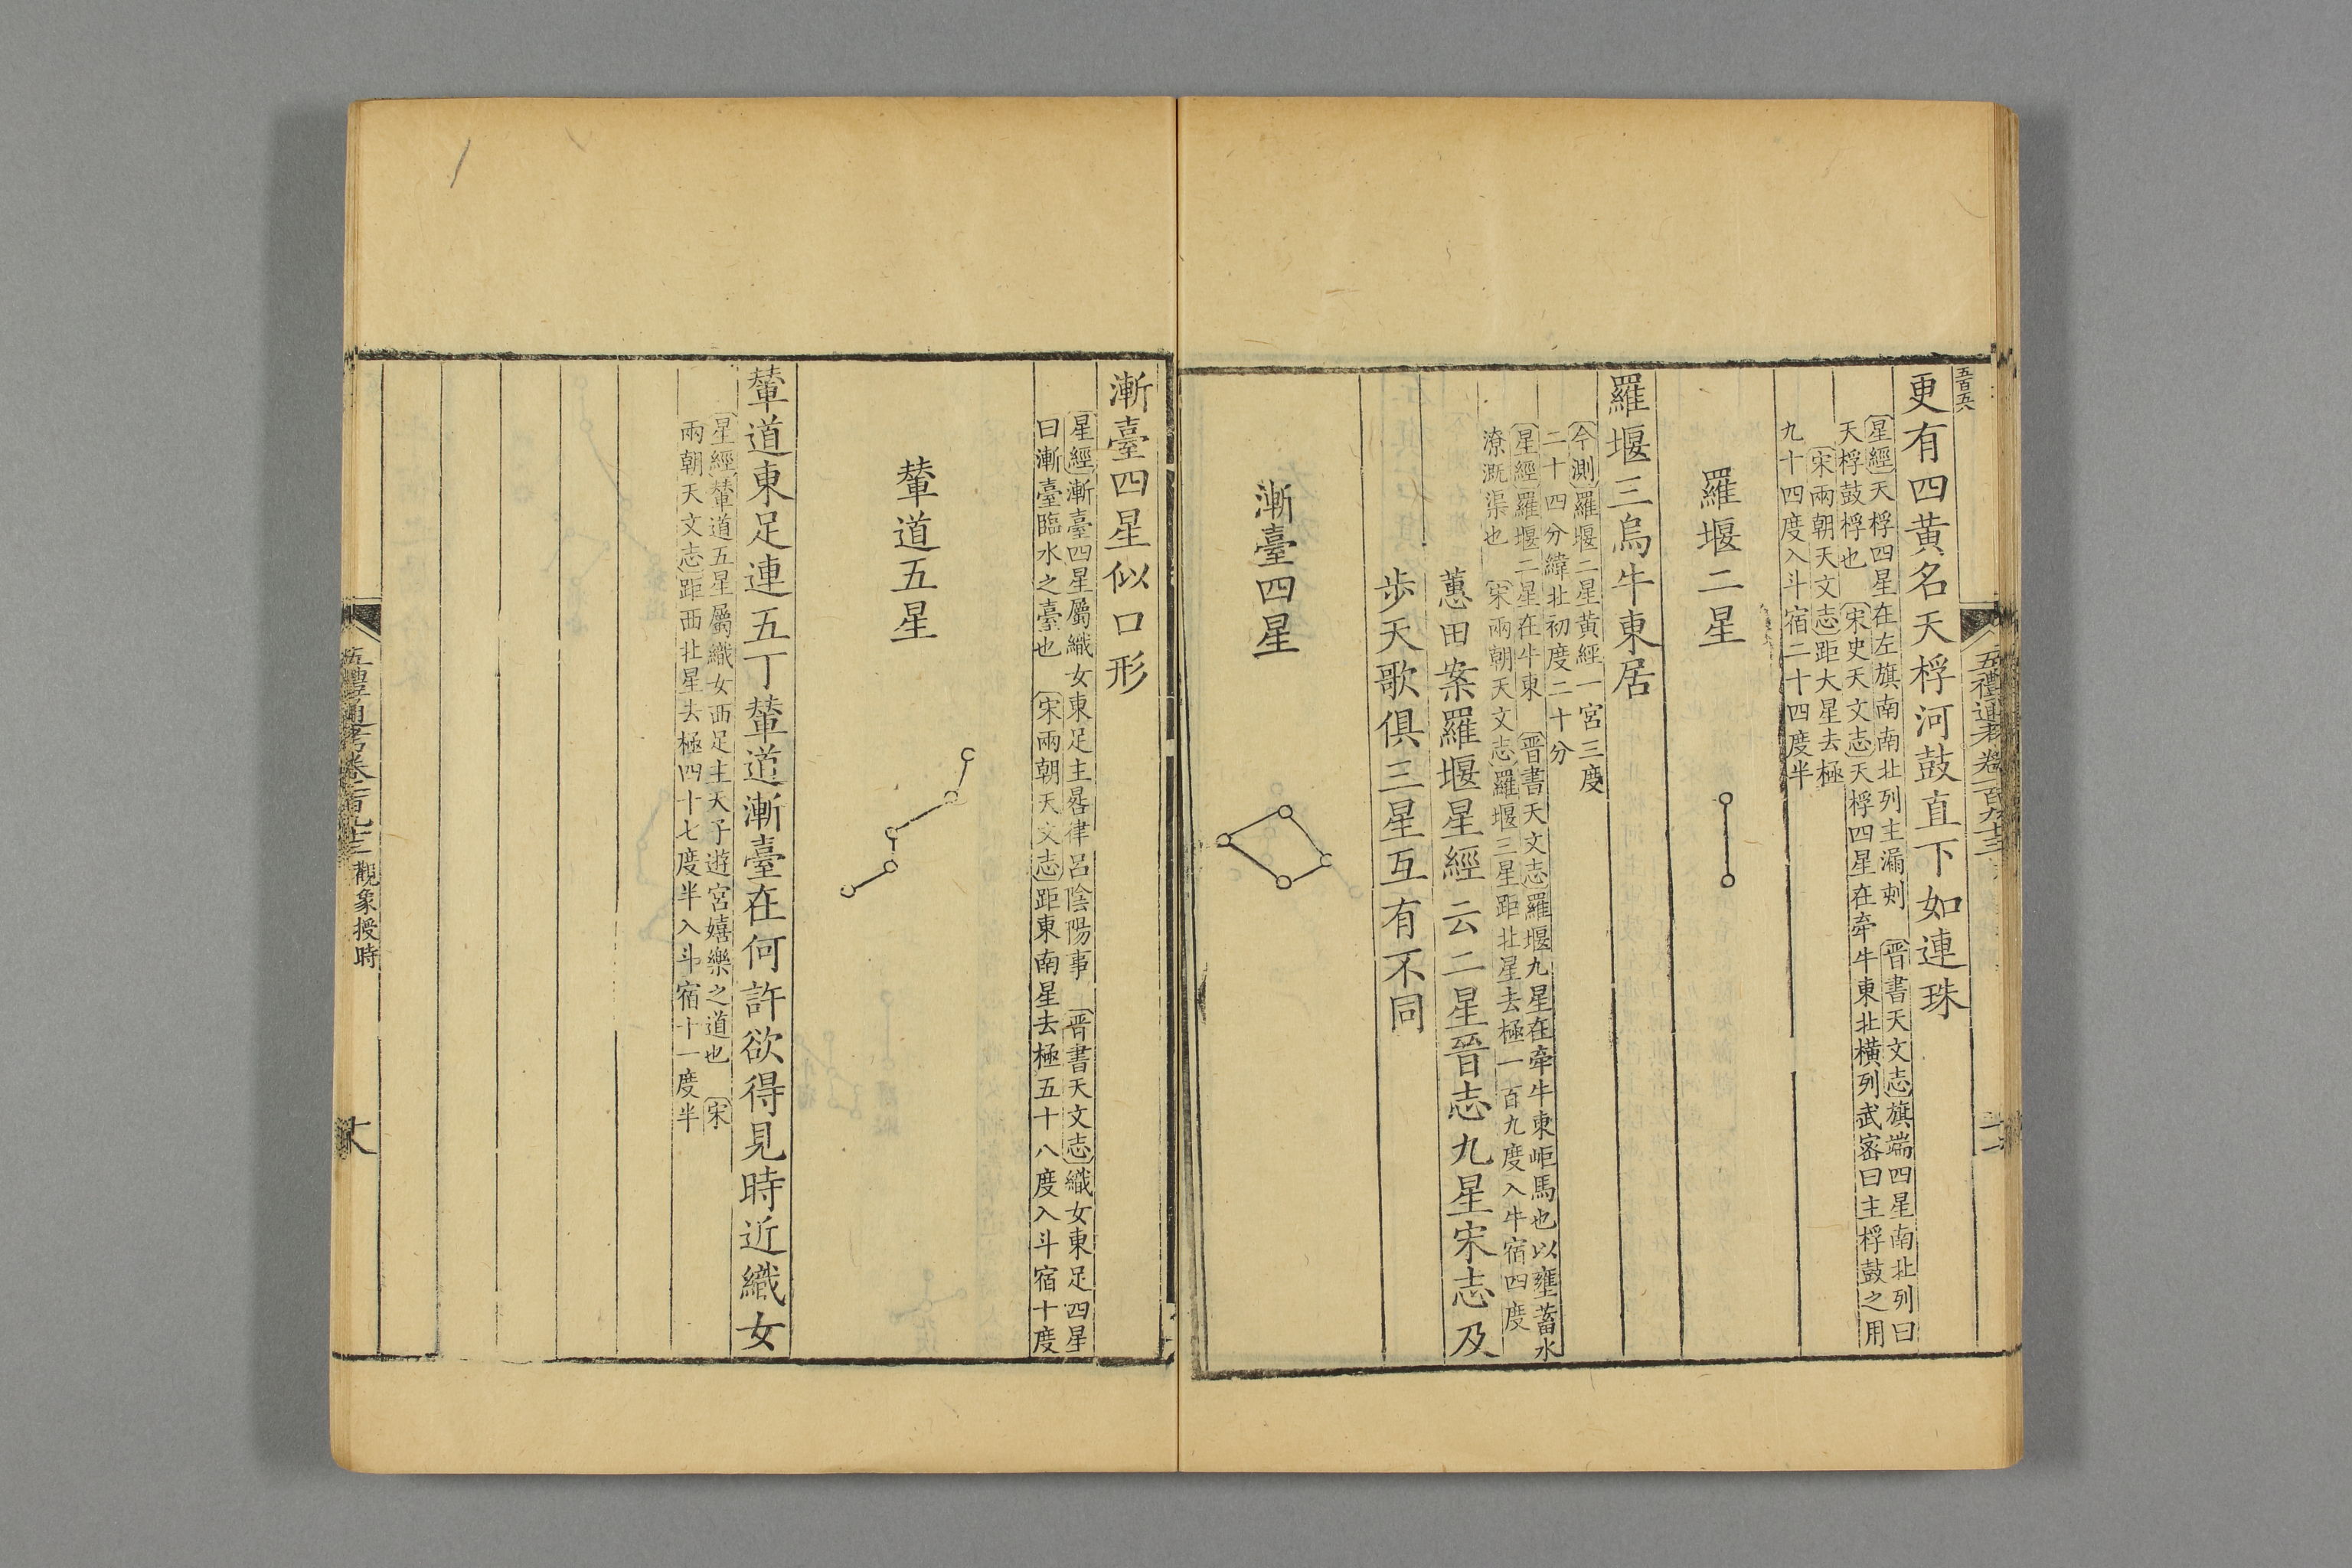 五百五六
更有四黃名天桴河鼓直下如連珠
星經天桴四星在左旗南南北列主漏刻　晉書天文志旗端四星南北列曰
天桴鼓桴也　宋史天文志天桴四星在牽牛東北橫列武密曰主桴鼓之用
宋兩朝天文志距大星去極
九十四度入斗宿二十四度半
羅堰二星
羅堰三烏牛東居
今測羅堰二星黃經一宮三度
二十四分緯北初度二十分
星經羅堰二星在牛東　晉書天文志羅堰九星在牽牛東岠馬也以壅蓄水
潦溉渠也　宋兩朝天文志羅堰三星距北星去極一百九度入牛宿四度
蕙田案羅堰星經云二星晉志九星宋志及
步天歌俱三星互有不同
漸臺四星
漸臺四星似口形
星經漸臺四星屬織女東足主晷律呂陰陽事　晉書天文志織女東足四星
曰漸臺臨水之臺也　宋兩朝天文志距東南星去極五十八度入斗宿十度
輦道五星
輦道東足連五丁輦道漸臺在何許欲得見時近織女
星經輦道五星屬織女西足主天子遊宮嬉樂之道也　宋
兩朝天文志距西北星去極四十七度半入斗宿十一度半
五禮通考卷一百九十三
觀象授時